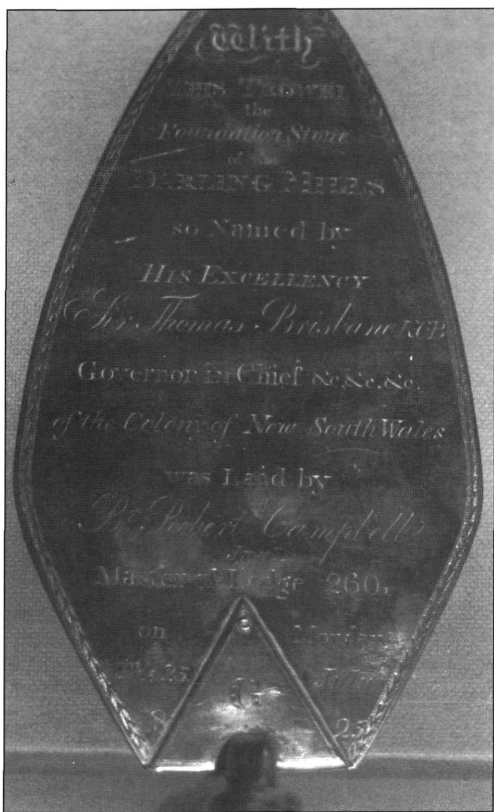 With
THIS TROWEL
the
Foundation Stone
of the
DARLING MILLS
so Named by
HIS EXCELLENCY
Sir Thomas Brisbane KCB
Governor in Chief &c,&c,&c.
of the Colony of New South Wales
was Laid by
Br. Robert Campbell
Master of Lodge 260,
on Monday
25 July
18 25